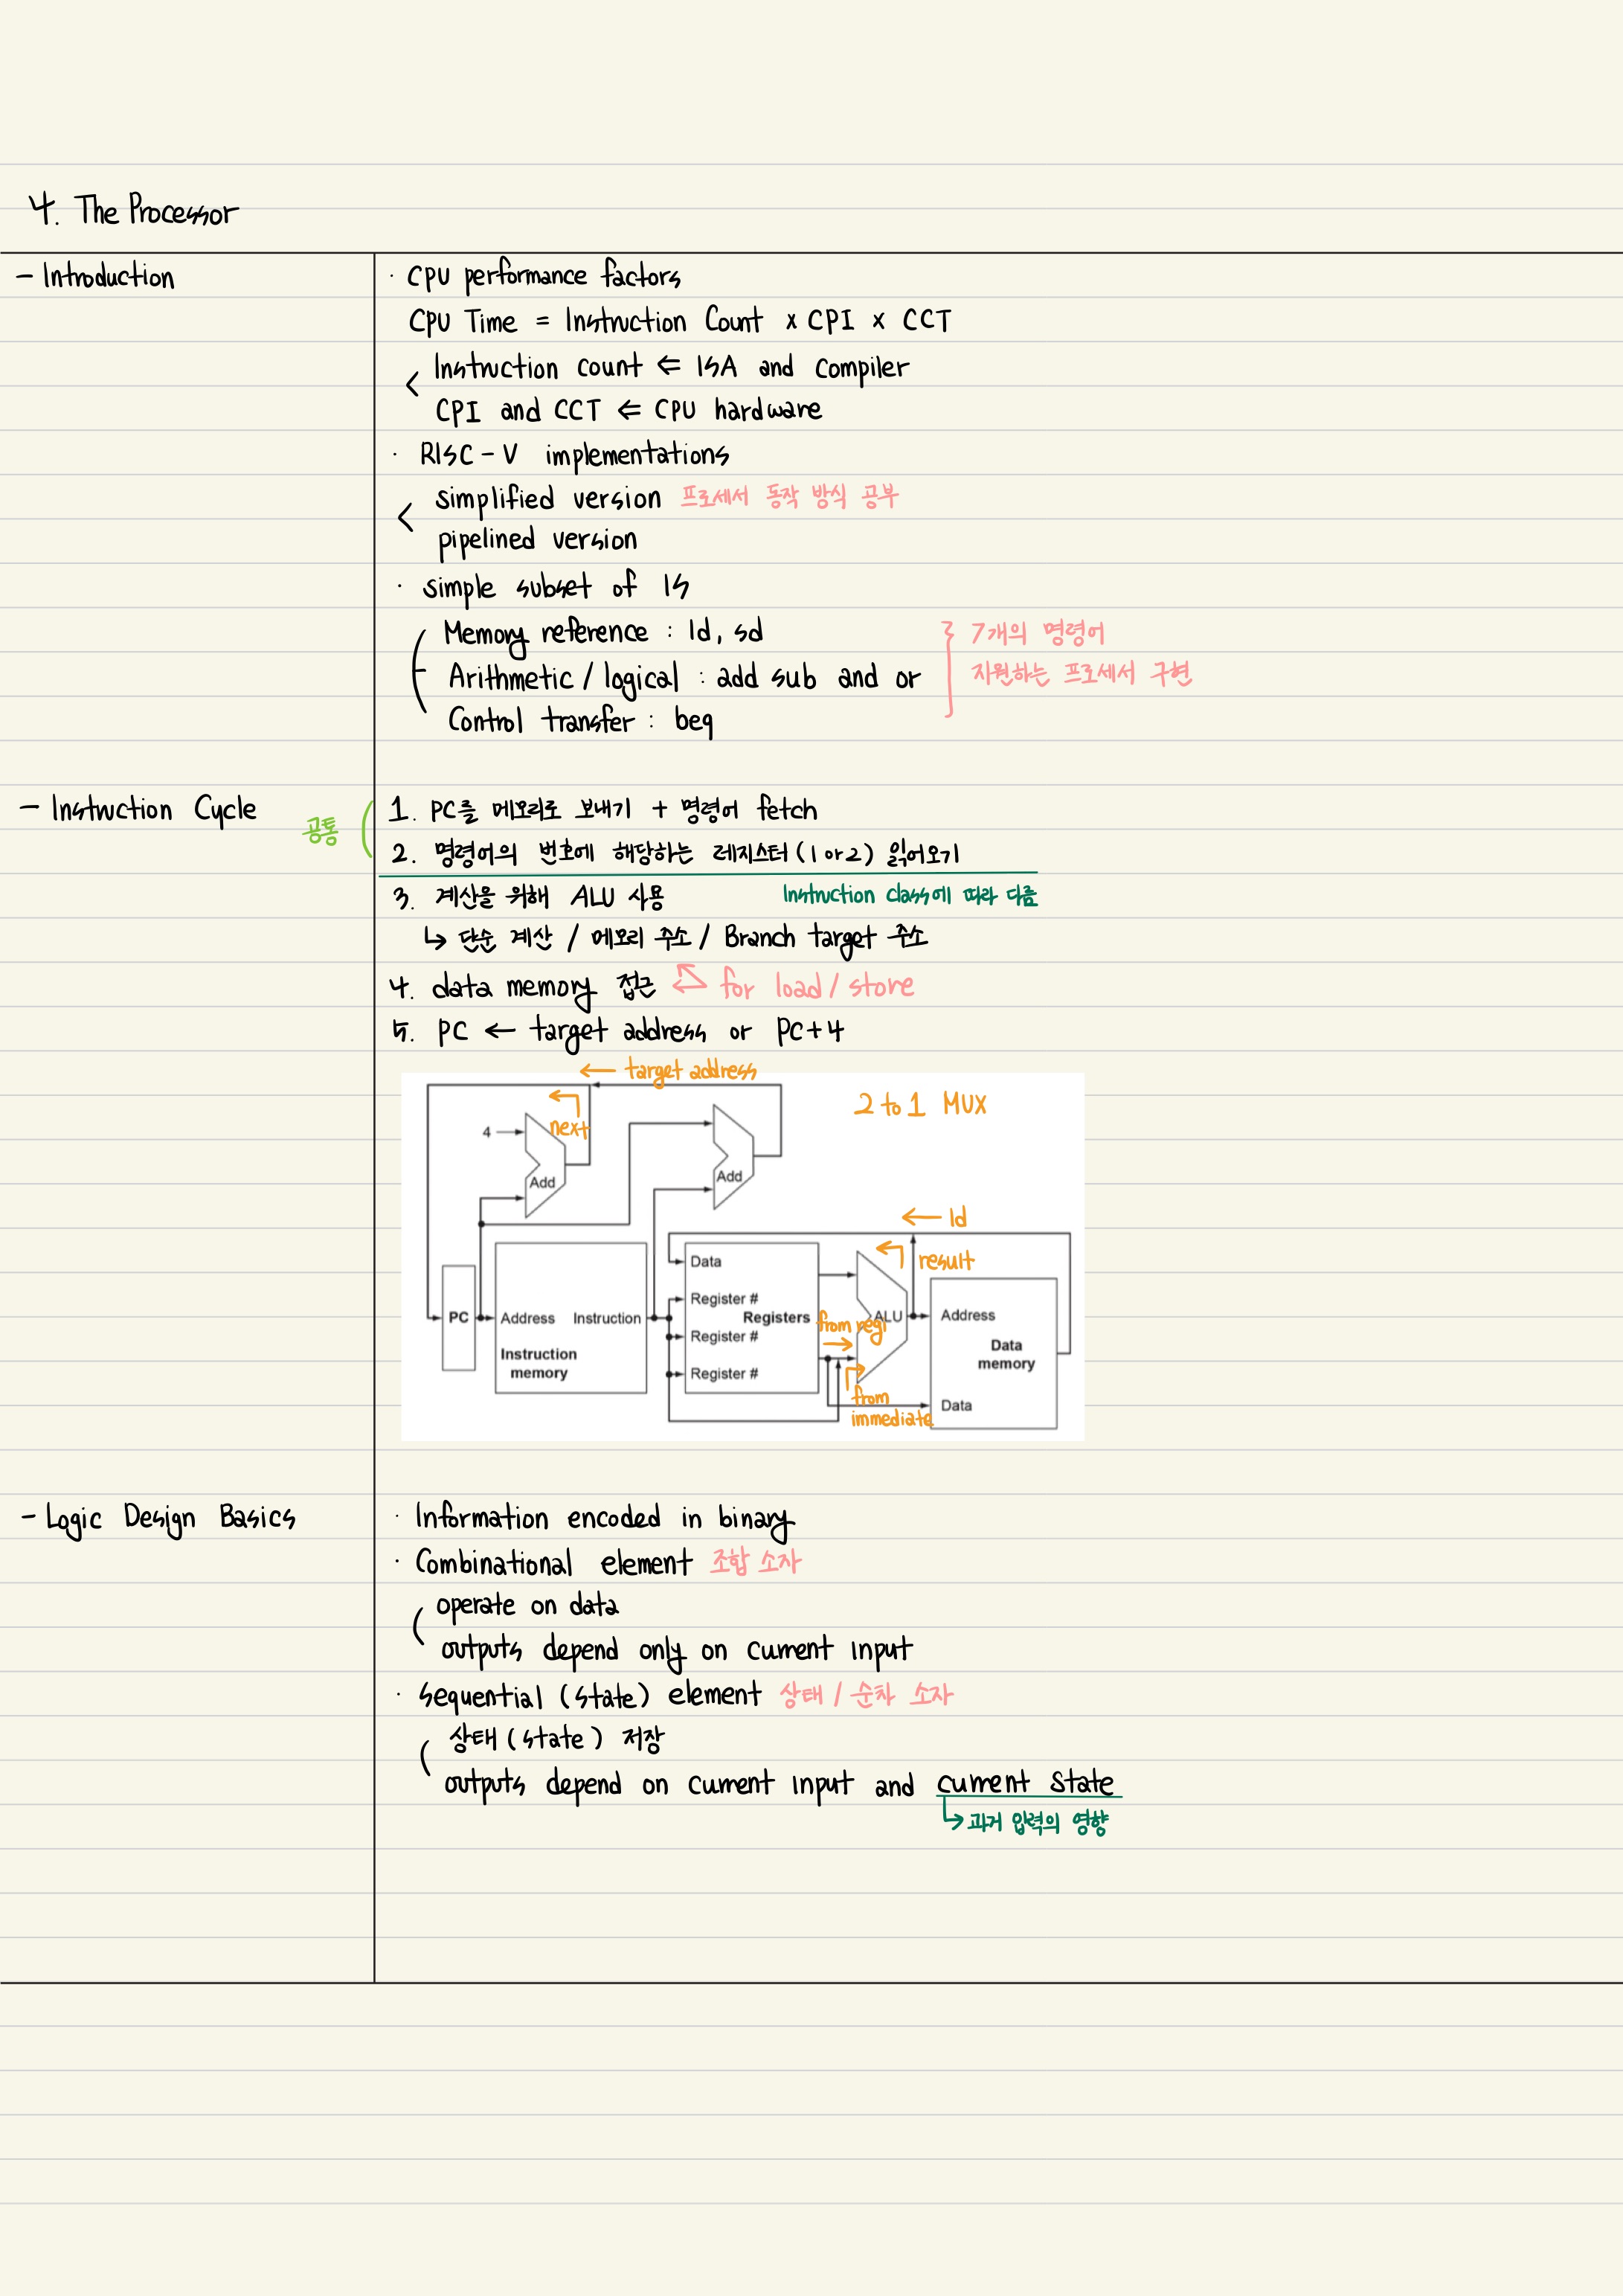 4. The Processor
- Introduction
· CPU performance factors
CPU Time = Instruction Count x CPI x CCT
Instruction count ⇐ ISA and Compiler
CPI and CCT ⇐ CPU hardware
· RISC-V implementations
simplified version 프로세서 동작 방식 공부
pipelined version
· simple subset of IS
Memory reference : ld, sd
Arithmetic / logical : add sub and or
Control transfer : beq
7개의 명령어
지원하는 프로세서 구현
- Instruction Cycle
공통
1. PC를 메모리로 보내기 + 명령어 fetch
2. 명령어의 번호에 해당하는 레지스터 (1 or 2) 읽어오기
3. 계산을 위해 ALU 사용 Instruction class에 따라 다름
↳ 단순 계산 / 메모리 주소 / Branch target 주소
4. data memory 접근 ⇐ for load / store
5. PC ← target address or PC+4
← target address
2 to 1 MUX
next
4
Add
Add
← ld
result
Data
Register #
Registers
Register #
Register #
PC
Address
Instruction
Instruction memory
from regi
ALU
from immediate
Address
Data memory
Data
- Logic Design Basics
· Information encoded in binary
· Combinational element 조합 소자
operate on data
outputs depend only on current input
· Sequential (state) element 상태 / 순차 소자
상태 (state) 저장
outputs depend on current input and current state
↳ 과거 입력의 영향